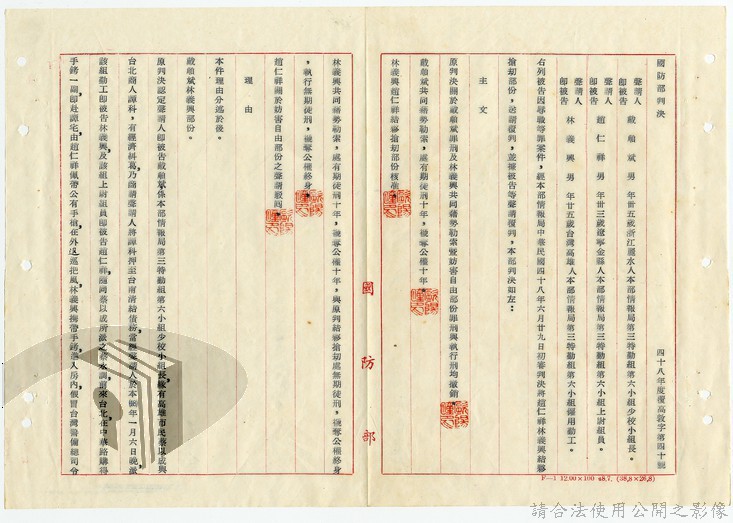 國防部判決
四十八年度覆高敦字第四十號
聲請人
即被告 戴顯斌 男 年卅五歲浙江麗水人本部情報局第三特勤組第六小組少校小組長。
聲請人
即被告 趙仁祥 男 年卅三歲遼寧金縣人本部情報局第三特勤組第六小組上尉組員。
聲請人
即被告 林義興 男 年廿五歲台灣高雄人本部情報局第三特勤組第六小組僱用勤工。
右列被告因辱職等罪案件，經本部情報局中華民國四十八年六月廿九日初審判決將趙仁祥林義興結夥
搶劫部份，送請覆判，並據被告等聲請覆判，本部判決如左：
主文
原判決關於戴顯斌罪刑及林義興共同藉勢勒索暨妨害自由部份罪刑與執行刑均撤銷。
戴顯斌共同藉勢勒索，處有期徒刑十年，褫奪公權十年。
林義興趙仁祥結夥搶劫部份核准。
林義興共同藉勢勒索，處有期徒刑十年，褫奪公權十年，與原判結夥搶劫處無期徒刑，褫奪公權終身
，執行無期徒刑，褫奪公權終身。
趙仁祥關於妨害自由部份之聲請駁回。
理由
本件理由分述於後。
戴顯斌林義興部份。
原判決認定聲請人即被告戴顯斌係本部情報局第三特勤組第六小組少校小組長，緣有高雄市民蔡以成與
台北商人譚科，有經濟糾葛，乃商請聲請人將譚科押至台南清結債務當經聲請人於本年一月六日晚派
該組勤工即被告林義興及該組上尉組員即被告趙仁祥
手銬一副即赴譚宅由趙仁祥佩帶公有手槍在外巡把風，林義興攜帶手銬進入房內，假冒台灣警備總司令
國防部
F—1 12.00×100 48.7. (38.8×26.8)
請合法使用公開之影像